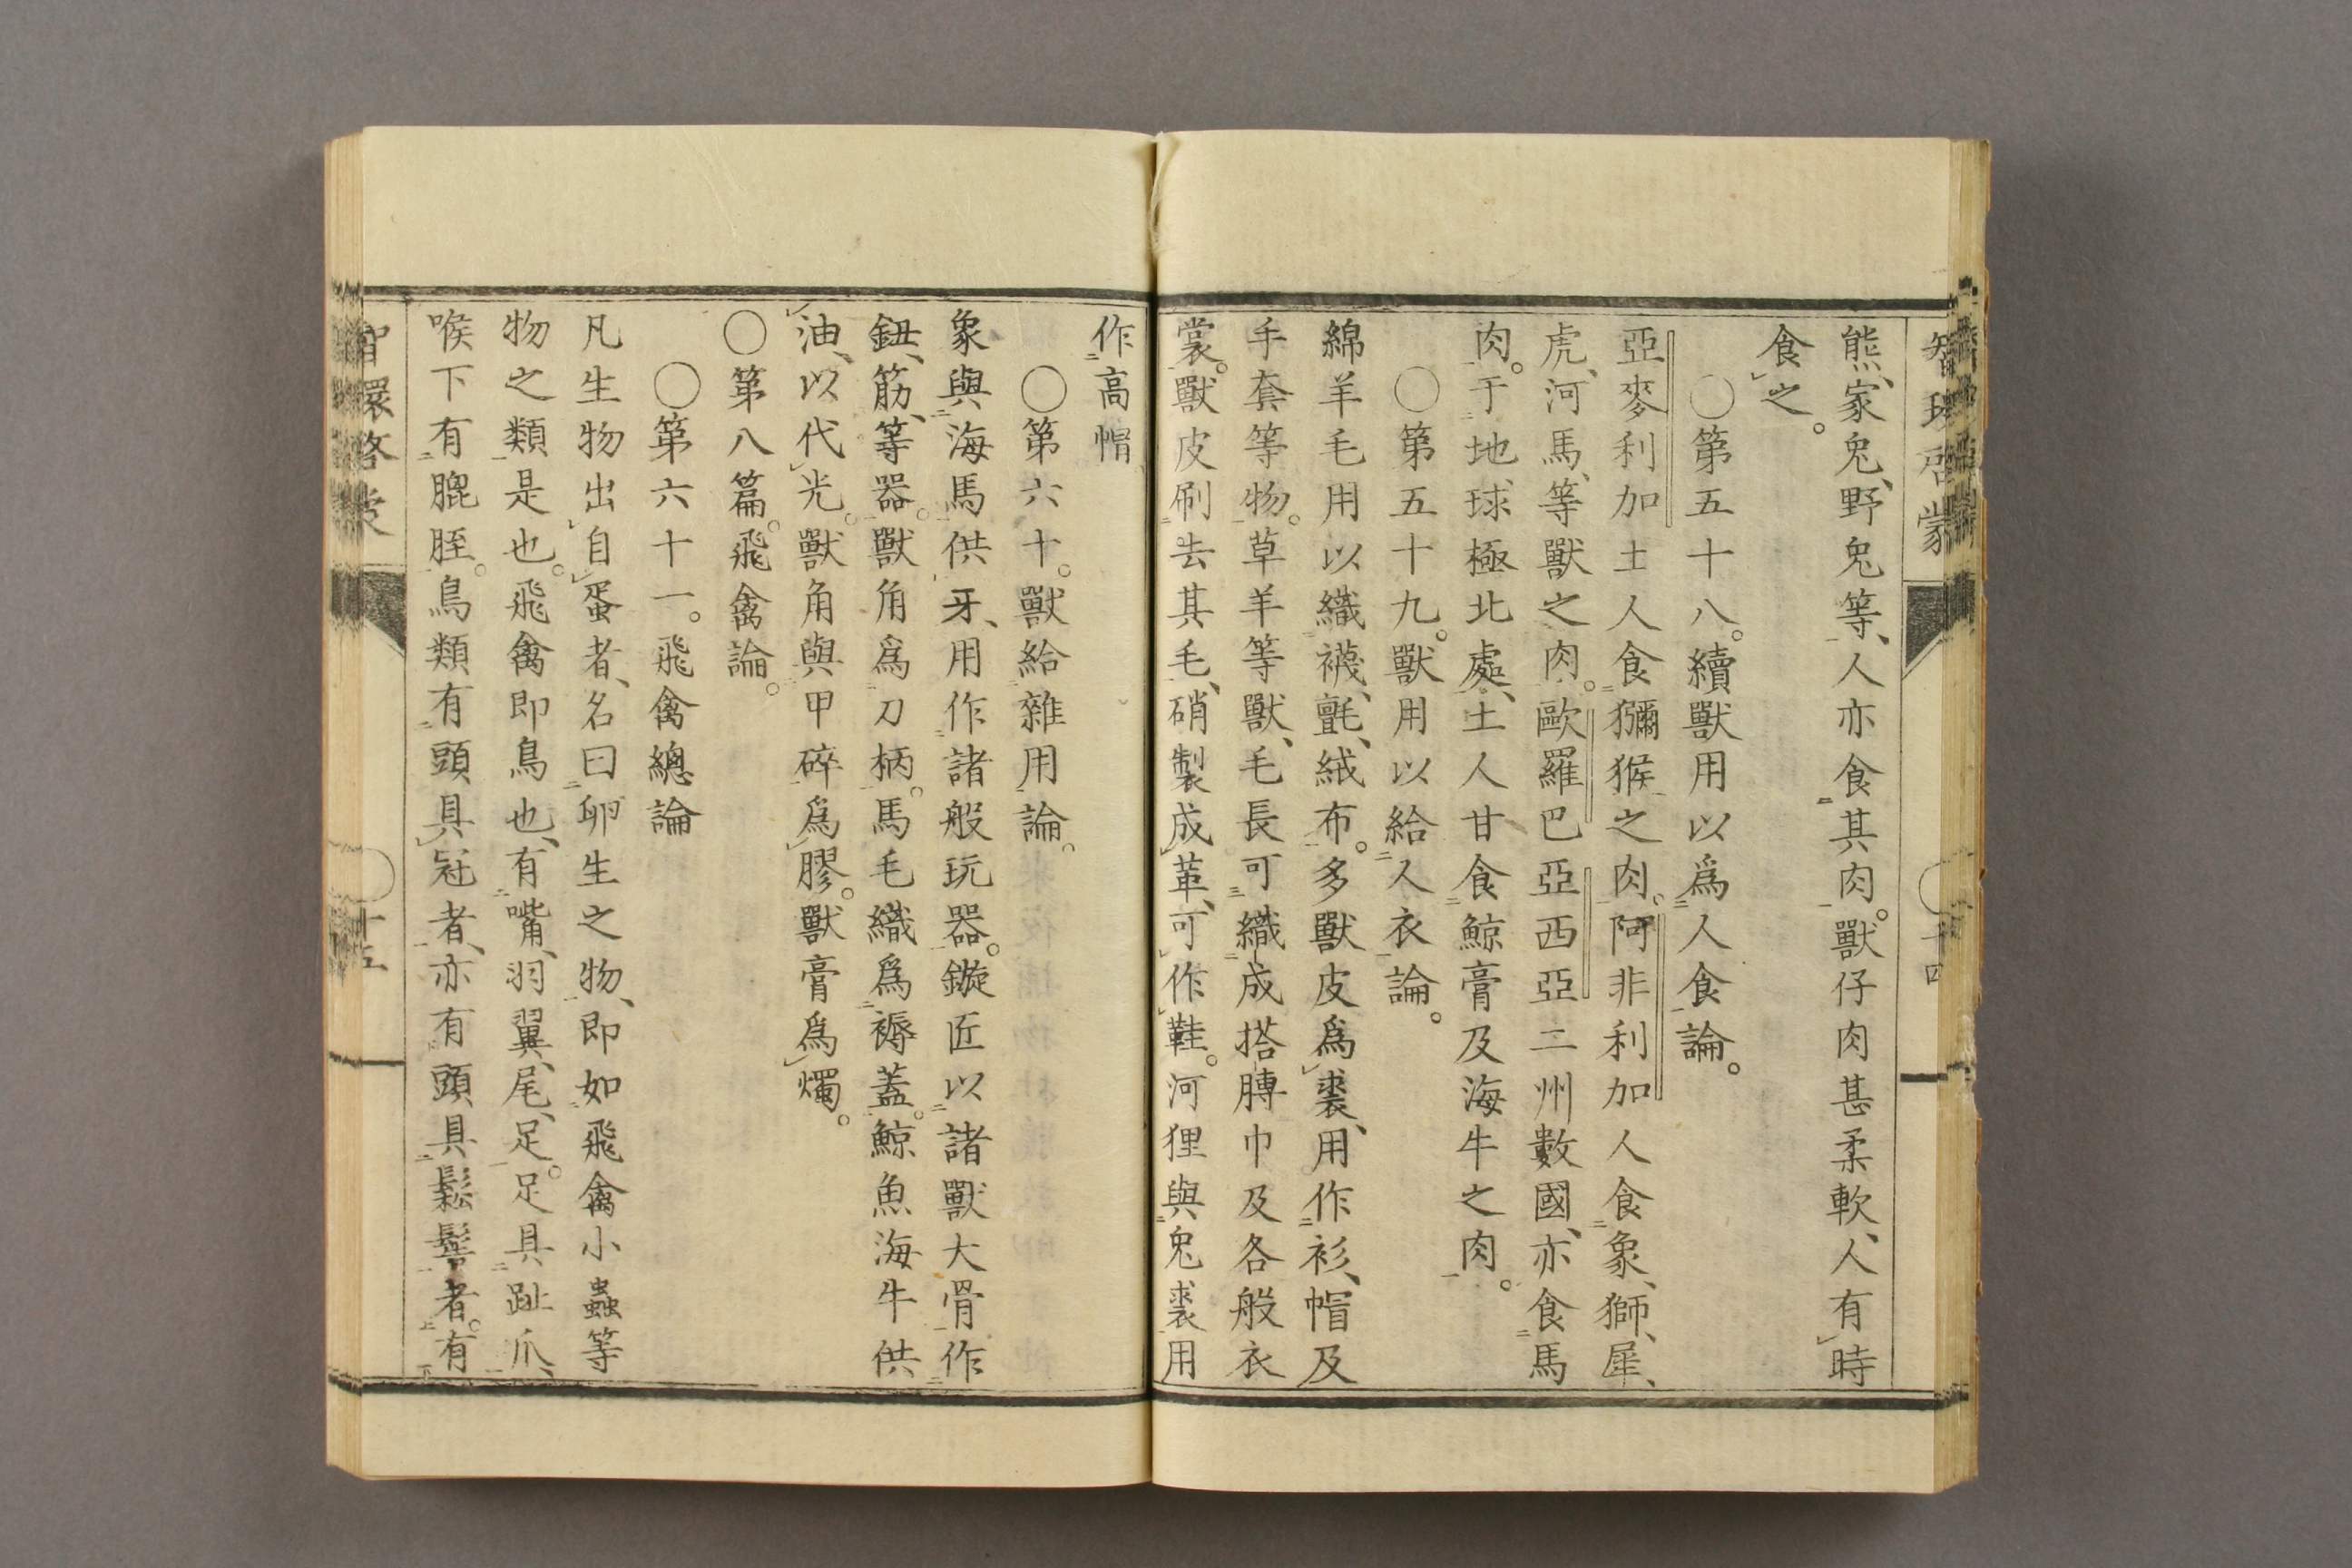 智環啓蒙
十四
熊、家兔、野兔等、人亦食其肉。獸仔肉甚柔軟、人有時
食之。
〇第五十八。續獸用以爲人食論。
亞麥利加土人食獼猴之肉。阿非利加人食象、獅、犀、
虎、河馬、等獸之肉。歐羅巴亞西亞二州數國、亦食馬
肉。于地球極北處、土人甘食鯨膏及海牛之肉。
〇第五十九。獸用以給人衣論。
綿羊毛用以織襪、氈、絨布。多獸皮爲裘、用作衫、帽及
手套等物。草羊等獸、毛長可織成搭膊巾及各般衣
裳。獸皮刷去其毛、硝製成革、可作鞋。河狸與兔裘用
作高帽
〇第六十。獸給雜用論。
象與海馬供牙、用作諸般玩器。鏇匠以諸獸大骨作
鈕、筋、等器。獸角爲刀柄。馬毛織爲褥蓋。鯨魚海牛供
油、以代光。獸角與甲碎爲膠。獸膏爲燭。
〇第八篇。飛禽論。
〇第六十一。飛禽總論
凡生物出自蛋者、名曰卵生之物、即如飛禽小蟲等
物之類是也。飛禽即鳥也、有嘴、羽翼、尾、足。足具趾爪、
喉下有膍胵。鳥類有頭具冠者、亦有頭具鬆髻者。有
智環啓蒙
十五